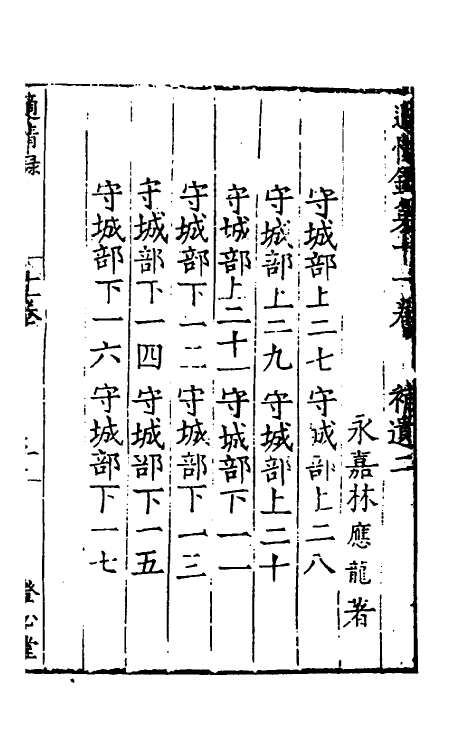 適情錄第十一卷　補遺二
永嘉林應龍著
守城部上二七　守城部上二八
守城部上二九　守城部上二十
守城部上二十一　守城部下一一
守城部下一二　守城部下一三
守城部下一四　守城部下一五
守城部下一六　守城部下一七
適情録　十一卷　澄心堂